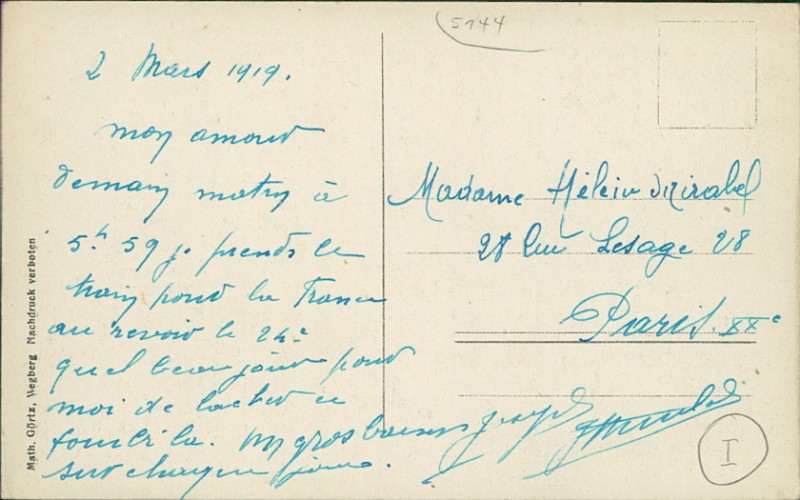 5144
2 Mars 1919.
mon amour
demain matin à
5h 59 je prends le
train pour la France
au revoir le 24e
quel beau jour pour
moi de lacher ce
fourbi la. un gros baiser
sur chaque joue.
Madame Hélein Mirabel
28 Rue Lesage 28
Paris. XXe
I
Math. Görtz, Wegberg Nachdruck verboten